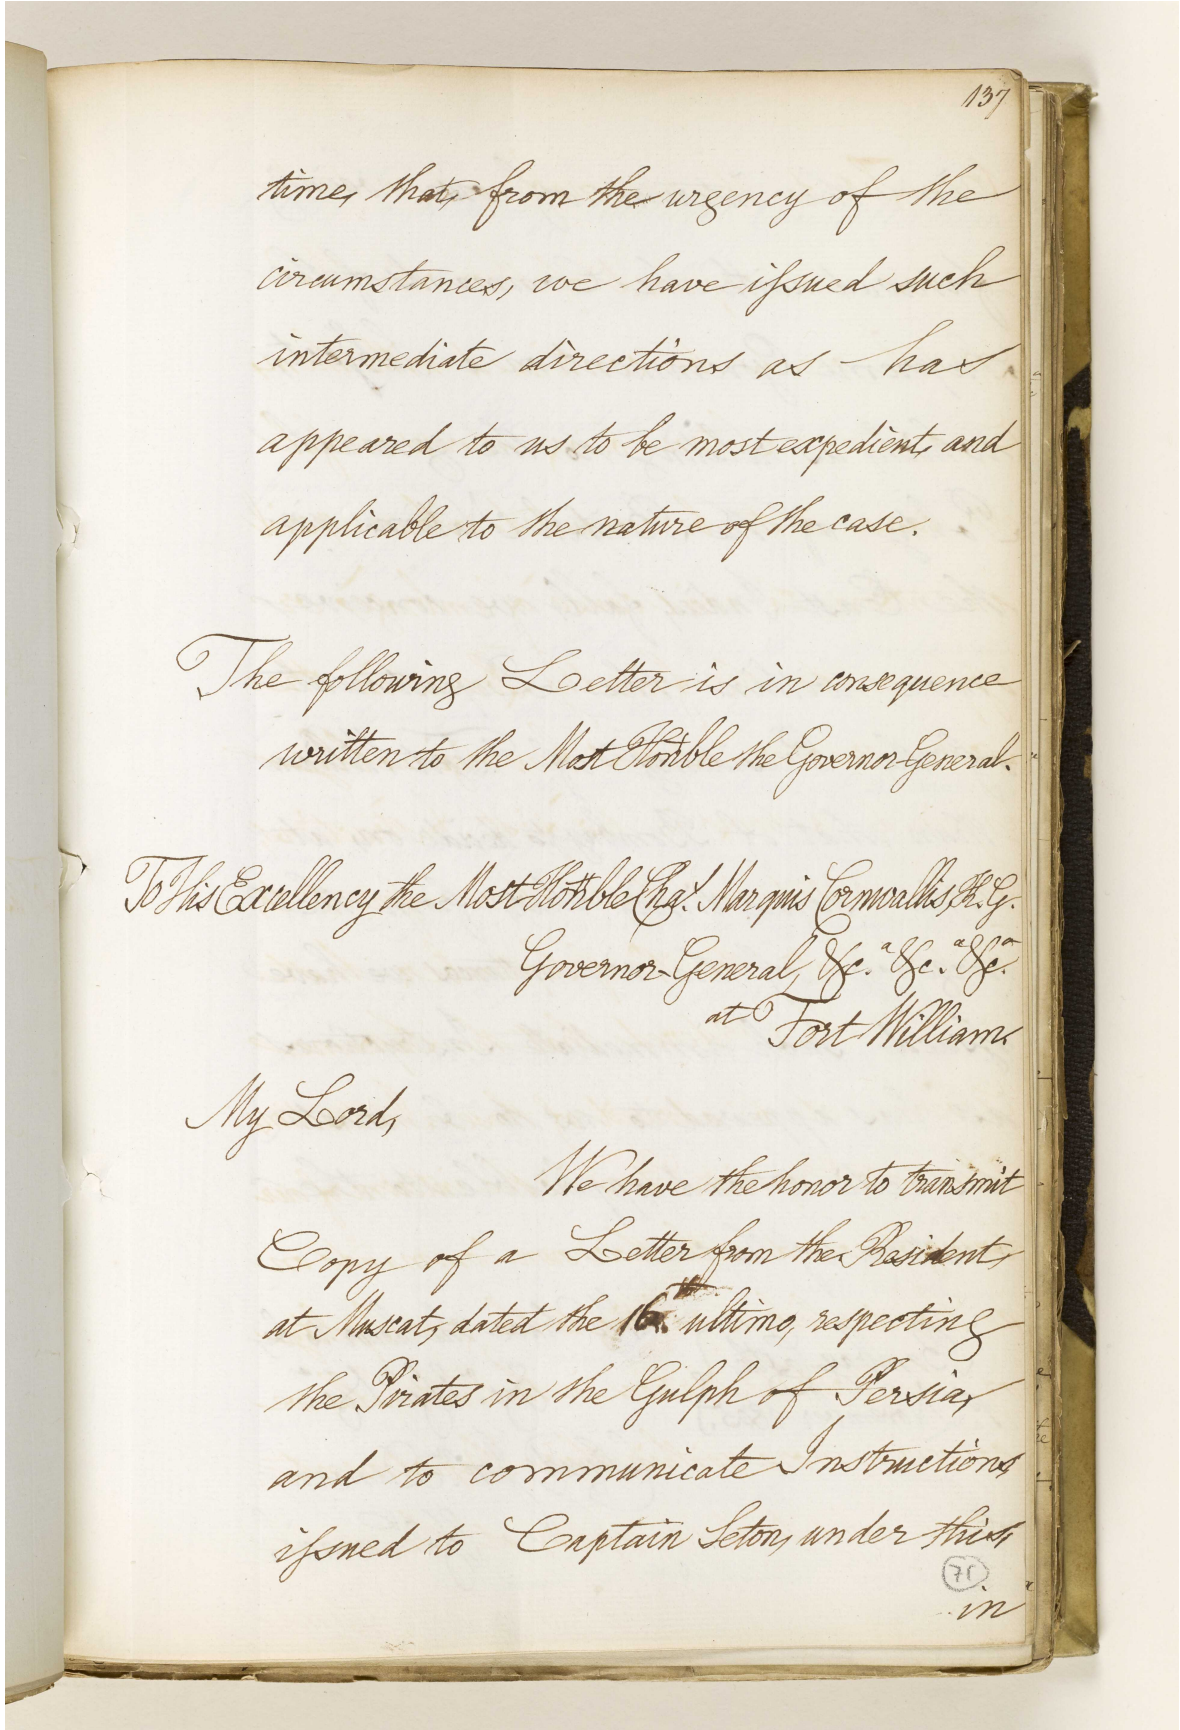 137
time, that, from the urgency of the
circumstances, we have issued such
intermediate directions as has
appeared to us to be most expedient, and
applicable to the nature of the case.
The following Letter is in consequence
written to the Most Honble the Governor General.
To His Excellency the Most Honble Chas. Marquis Cornwallis, K.G.
Governor-General, &c.a &c.a &c.a
at Fort William.
My Lord,
We have the honor to transmit
Copy of a Letter from the Resident,
at Muscat, dated the 16th ultimo, respecting
the Pirates in the Gulph of Persia,
and to communicate Instructions,
issued to Captain Seton, under this,
71
in